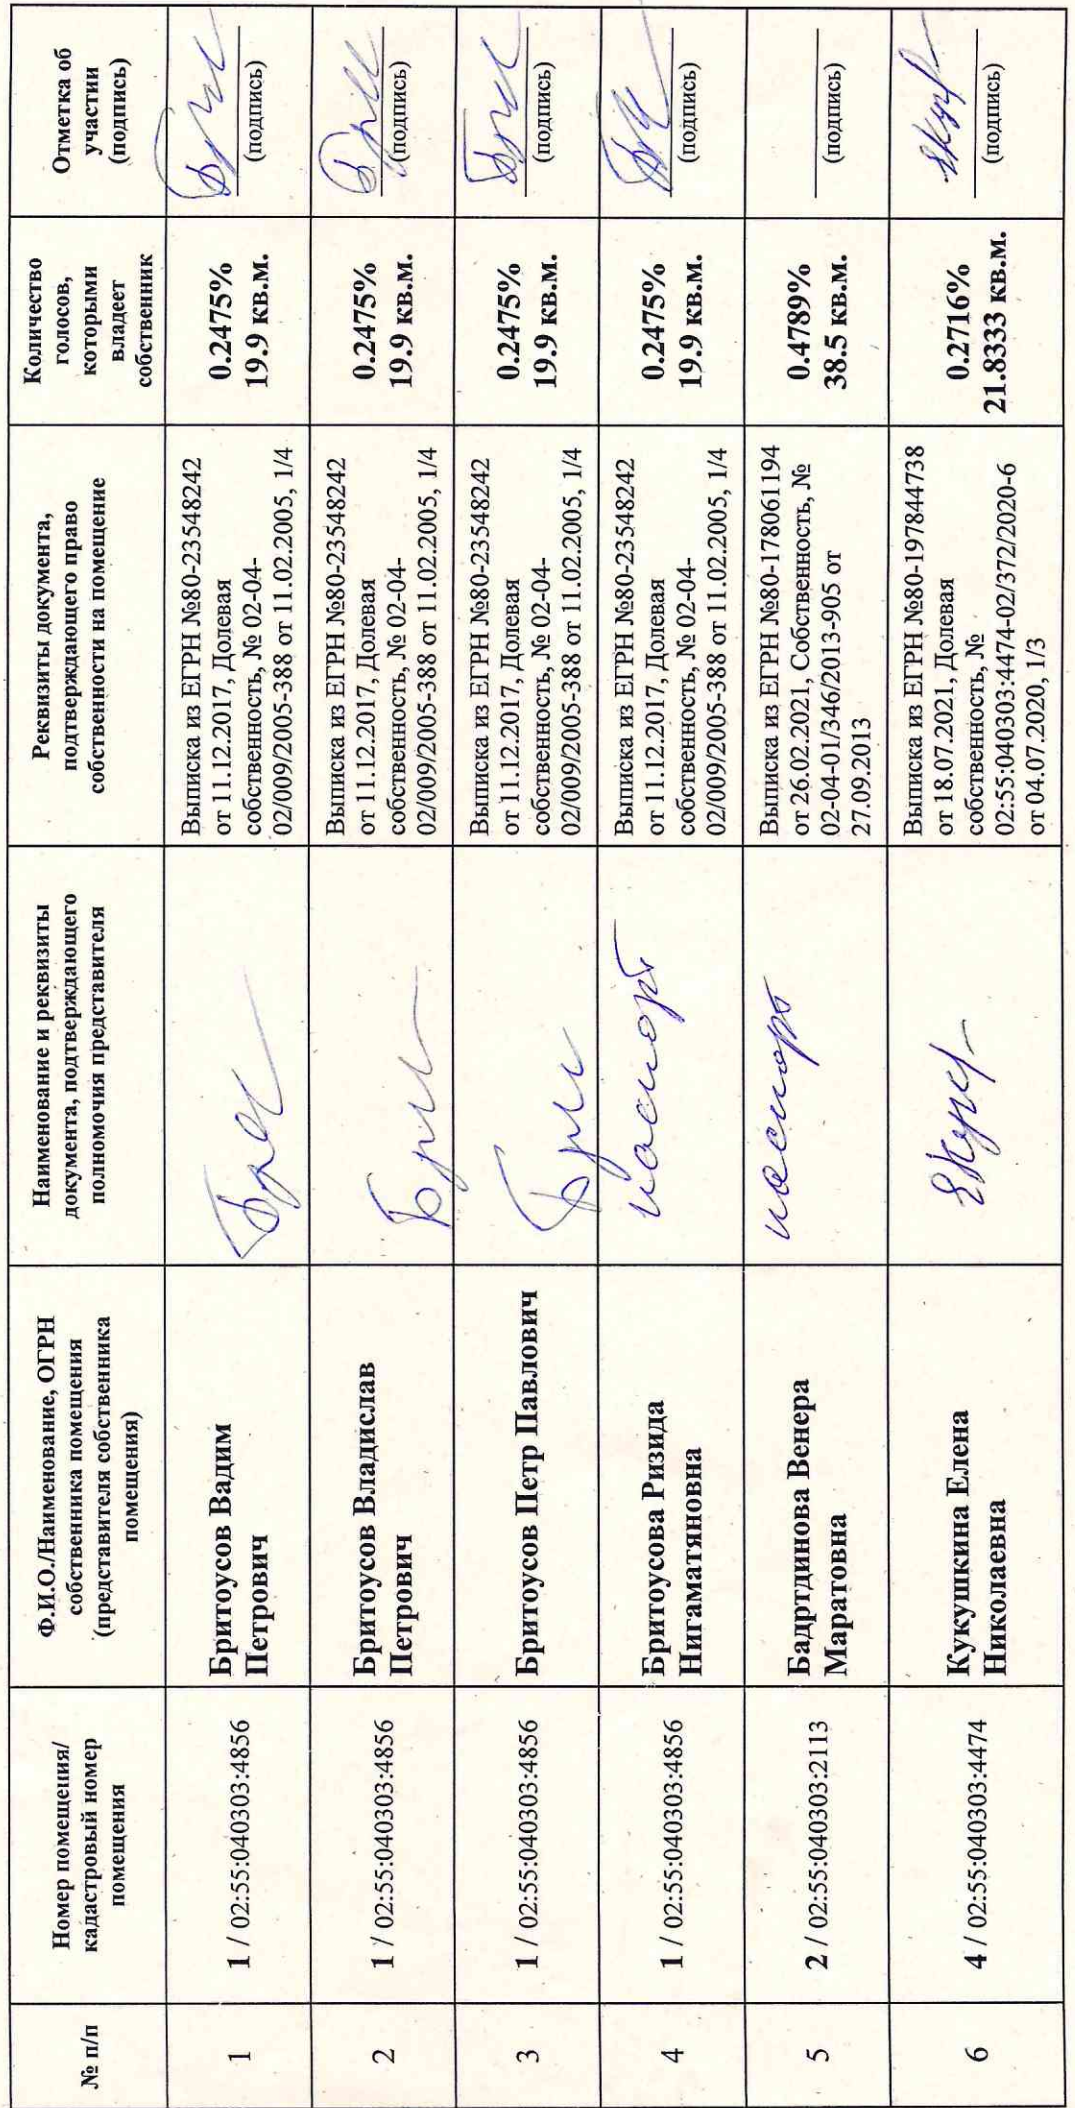 № п/п
Номер помещения/
кадастровый номер
помещения
Ф.И.О./Наименование, ОГРН
собственника помещения
(представителя собственника
помещения)
Наименование и реквизиты
документа, подтверждающего
полномочия представителя
Реквизиты документа,
подтверждающего право
собственности на помещение
Количество
голосов,
которыми
владеет
собственник
Отметка об
участии
(подпись)
1
1 / 02:55:040303:4856
Бритоусов Вадим
Петрович
Выписка из ЕГРН №80-23548242
от 11.12.2017, Долевая
собственность, № 02-04-
02/009/2005-388 от 11.02.2005, 1/4
0.2475%
19.9 кв.м.
(подпись)
2
1 / 02:55:040303:4856
Бритоусов Владислав
Петрович
Выписка из ЕГРН №80-23548242
от 11.12.2017, Долевая
собственность, № 02-04-
02/009/2005-388 от 11.02.2005, 1/4
0.2475%
19.9 кв.м.
(подпись)
3
1 / 02:55:040303:4856
Бритоусов Петр Павлович
Выписка из ЕГРН №80-23548242
от 11.12.2017, Долевая
собственность, № 02-04-
02/009/2005-388 от 11.02.2005, 1/4
0.2475%
19.9 кв.м.
(подпись)
4
1 / 02:55:040303:4856
Бритоусова Ризида
Нигаматяновна
паспорт
Выписка из ЕГРН №80-23548242
от 11.12.2017, Долевая
собственность, № 02-04-
02/009/2005-388 от 11.02.2005, 1/4
0.2475%
19.9 кв.м.
(подпись)
5
2 / 02:55:040303:2113
Бадртдинова Венера
Маратовна
паспорт
Выписка из ЕГРН №80-178061194
от 26.02.2021, Собственность, №
02-04-01/346/2013-905 от
27.09.2013
0.4789%
38.5 кв.м.
(подпись)
6
4 / 02:55:040303:4474
Кукушкина Елена
Николаевна
Выписка из ЕГРН №80-197844738
от 18.07.2021, Долевая
собственность, №
02:55:040303:4474-02/372/2020-6
от 04.07.2020, 1/3
0.2716%
21.8333 кв.м.
(подпись)